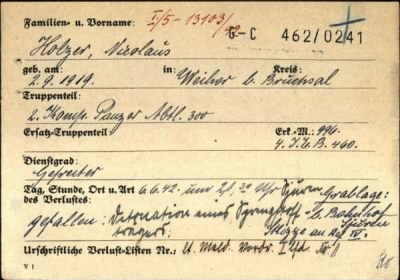 Familien- u. Vorname: I/5-13103/42 G-C 462/0241
Holzer, Nicolaus
geb. am: in: Kreis:
2.9.1919. Weiher b. Bruchsal
Truppenteil:
2. Komp. Panzer Abtl. 300
Ersatz-Truppenteil: Erk.-M.: 496.
4. I. E. B. 460.
Dienstgrad:
Gefreiter
Tag, Stunde, Ort u. Art 6.6.42 um Uhr Grablage:
des Verlustes:
gefallen: Detonation eines Sprengstoff- b. Bahnhof
trägers. an der
Urschriftliche Verlust-Listen Nr.: U. Meld. Vordr. Lfd. Nr.
V 1